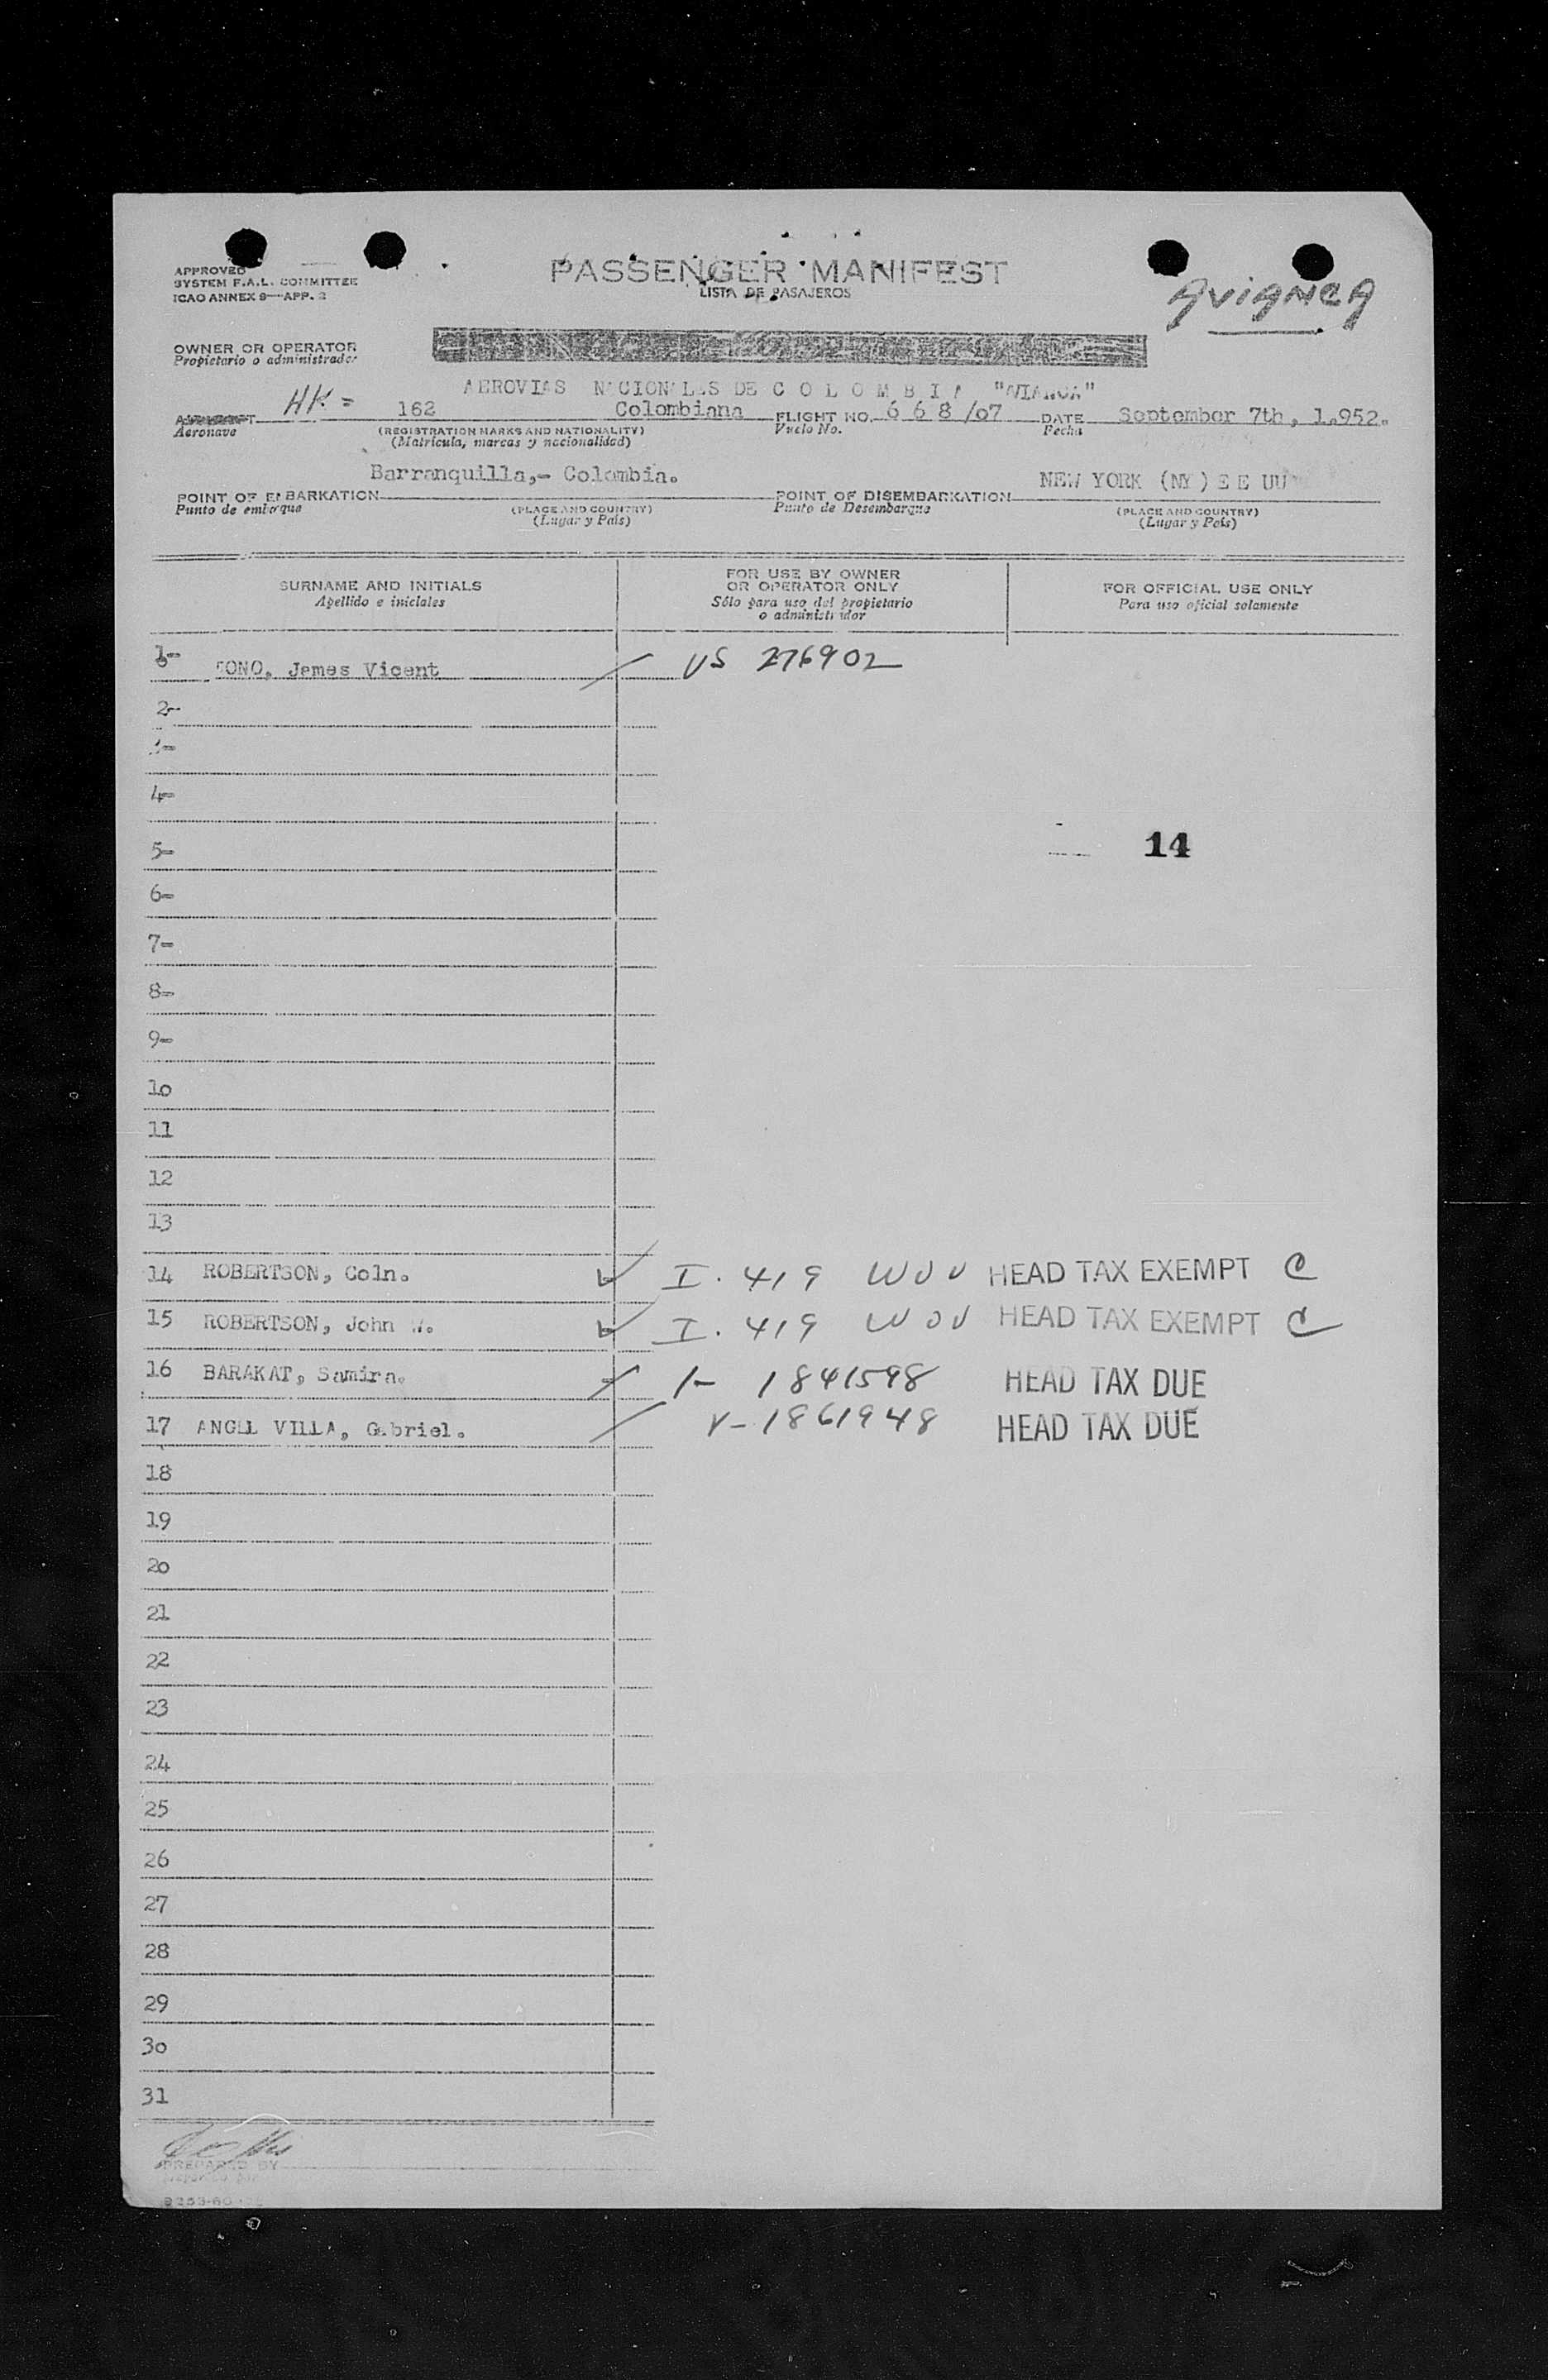 APPROVED
SYSTEM F.A.L. COMMITTEE
ICAO ANNEX 9—APP. 2
PASSENGER MANIFEST
LISTA DE PASAJEROS
AVIANCA
OWNER OR OPERATOR
Propietario o administrador
AEROVIAS NACIONALES DE COLOMBIA "AVIANCA"
AIRCRAFT HK= 162 Colombiana FLIGHT NO. 668/07 DATE September 7th, 1.952.
Aeronave (REGISTRATION MARKS AND NATIONALITY) Vuelo No. Fecha
(Matrícula, marcas y nacionalidad)
Barranquilla,- Colombia. NEW YORK (NY) E E UU
POINT OF EMBARKATION POINT OF DISEMBARKATION
Punto de embarque (PLACE AND COUNTRY) Punto de Desembarque (PLACE AND COUNTRY)
(Lugar y País) (Lugar y País)
SURNAME AND INITIALS FOR USE BY OWNER OR OPERATOR ONLY FOR OFFICIAL USE ONLY
Apellido e iniciales Sólo para uso del propietario o administrador Para uso oficial solamente
1- James Vicent US 276902
2-
3-
4-
14
5-
6-
7-
8-
9-
10
11
12
13
14 ROBERTSON, Coln. I. 419 HEAD TAX EXEMPT C
15 ROBERTSON, John W. I. 419 HEAD TAX EXEMPT C
16 BARAKAT, Samira. 1841598 HEAD TAX DUE
17 ANGEL VILLA, Gabriel. V-1861948 HEAD TAX DUE
18
19
20
21
22
23
24
25
26
27
28
29
30
31
PREPARED BY